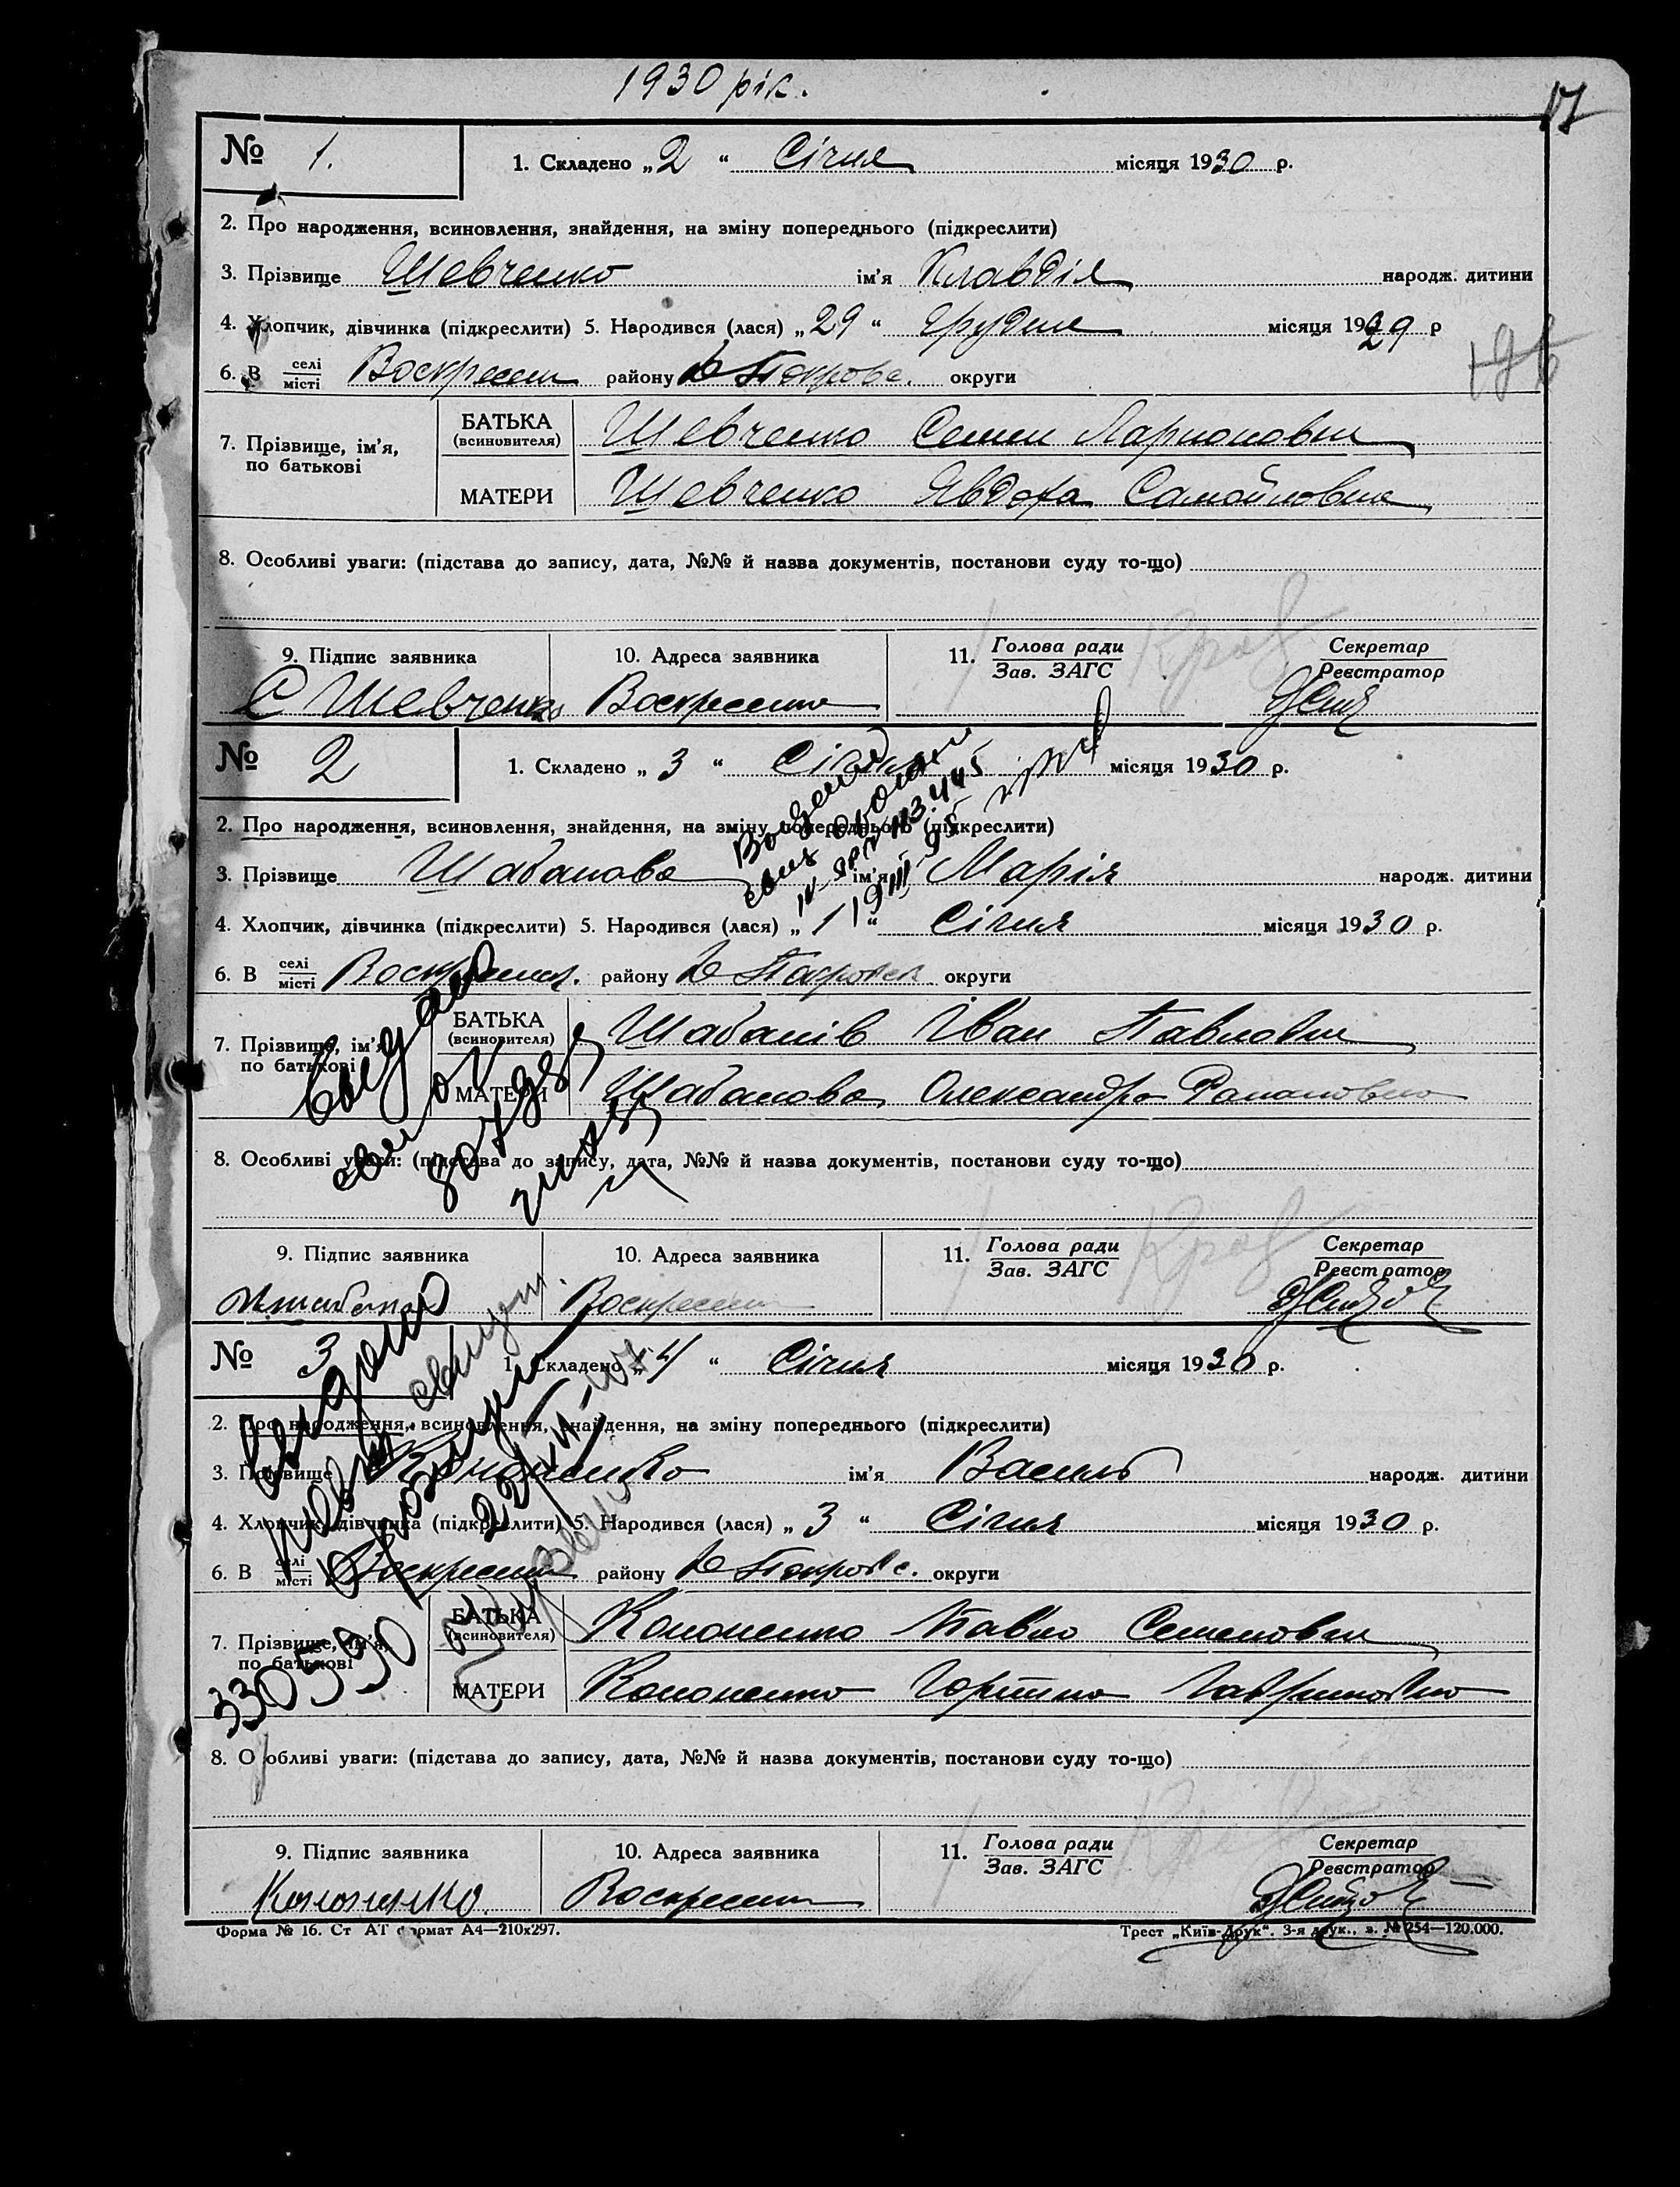 1930 рік.
17
№ 1.
1. Складено „2“ Січня місяця 1930 р.
2. Про народження, всиновлення, знайдення, на зміну попереднього (підкреслити)
3. Прізвище Шевченко ім'я Клавдія народж. дитини
4. Хлопчик, дівчинка (підкреслити) 5. Народився (лася) „29“ Грудня місяця 1929 р
6. В селі місті Воскресен району Н Покровс. округи
7. Прізвище, ім'я, по батькові
БАТЬКА (всиновителя) Шевченко Семен Ларионович
МАТЕРИ Шевченко Явдоха Самойловна
8. Особливі уваги: (підстава до запису, дата, №№ й назва документів, постанови суду то-що)
9. Підпис заявника 10. Адреса заявника 11. Голова ради Зав. ЗАГС Секретар Реєстратор
С Шевченко Воскресенка
№ 2
1. Складено „3“ Січня місяця 1930 р.
2. Про народження, всиновлення, знайдення, на зміну попереднього (підкреслити)
3. Прізвище Шабанова ім'я Марія народж. дитини
4. Хлопчик, дівчинка (підкреслити) 5. Народився (лася) „1“ Січня місяця 1930 р.
6. В селі місті Воскресен. району Н Покровск округи
7. Прізвище, ім'я, по батькові
БАТЬКА (всиновителя) Шабанів Іван Павлович
МАТЕРИ Шабанова Олександра Романовна
8. Особливі уваги: (підстава до запису, дата, №№ й назва документів, постанови суду то-що)
9. Підпис заявника 10. Адреса заявника 11. Голова ради Зав. ЗАГС Секретар Реєстратор
Воскресен
№ 3
1. Складено „4“ Січня місяця 1930 р.
2. Про народження, всиновлення, знайдення, на зміну попереднього (підкреслити)
3. Прізвище Кононенко ім'я Василь народж. дитини
4. Хлопчик, дівчинка (підкреслити) 5. Народився (лася) „3“ Січня місяця 1930 р.
6. В селі місті Воскресен району Н Покровс. округи
7. Прізвище, ім'я, по батькові
БАТЬКА (всиновителя) Кононенко Павло Семенович
МАТЕРИ Кононенко Горпина Гавриловна
330590
8. Особливі уваги: (підстава до запису, дата, №№ й назва документів, постанови суду то-що)
9. Підпис заявника 10. Адреса заявника 11. Голова ради Зав. ЗАГС Секретар Реєстратор
Кононенко. Воскресен
Форма № 16. Ст АТ формат А4—210х297. Трест „Київ-Друк“. 3-я друк., з. № 254—120.000.